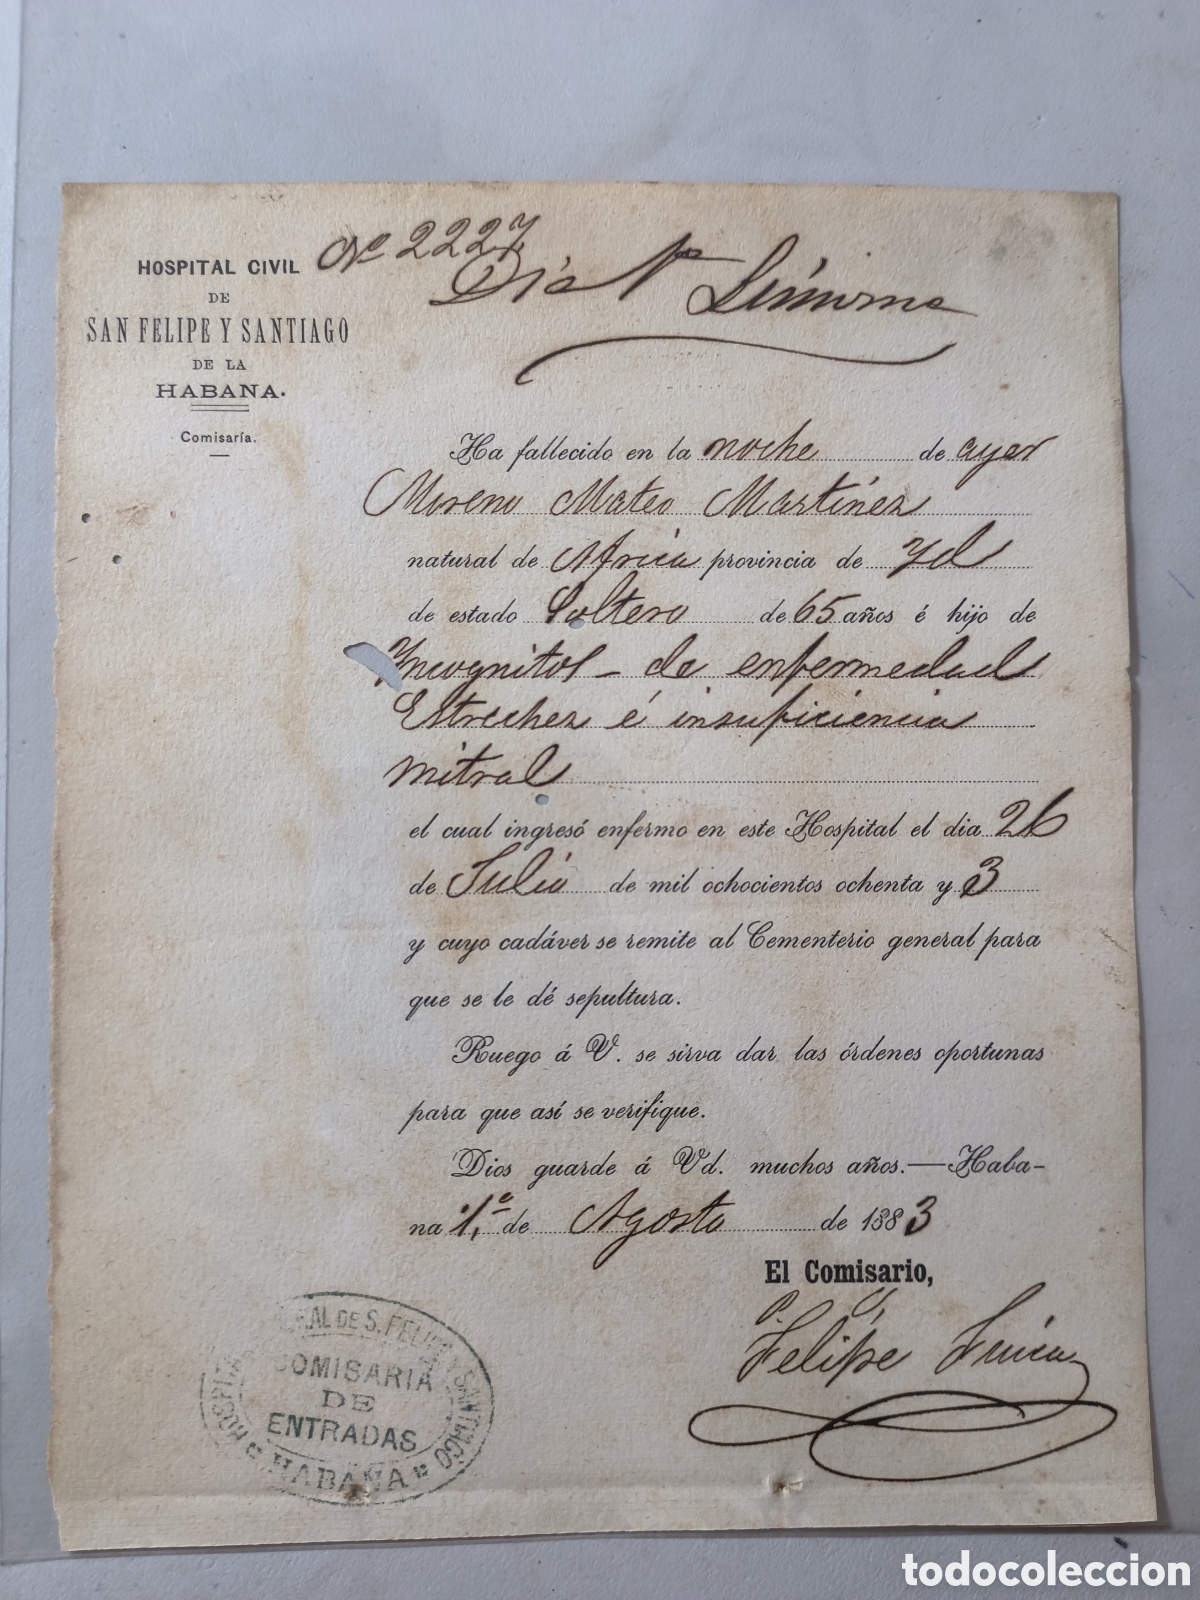 Nº 2227
HOSPITAL CIVIL
DE
SAN FELIPE Y SANTIAGO
DE LA
HABANA.
Comisaría.
Ha fallecido en la noche de ayer
Moreno Mateo Martinez
natural de Africa provincia de Yd
de estado Soltero de 65 años é hijo de
Yncognitos - de enfermedad
Estrechez é insuficiencia
mitral
el cual ingresó enfermo en este Hospital el dia 26
de Julio de mil ochocientos ochenta y 3
y cuyo cadáver se remite al Cementerio general para
que se le dé sepultura.
Ruego á V. se sirva dar las órdenes oportunas
para que así se verifique.
Dios guarde á Vd. muchos años.—Haba-
na 1.º de Agosto de 1883
El Comisario,
Felipe
COMISARIA
DE
ENTRADAS
HOSPITAL DE S. FELIPE Y SANTIAGO
HABANA
todocoleccion